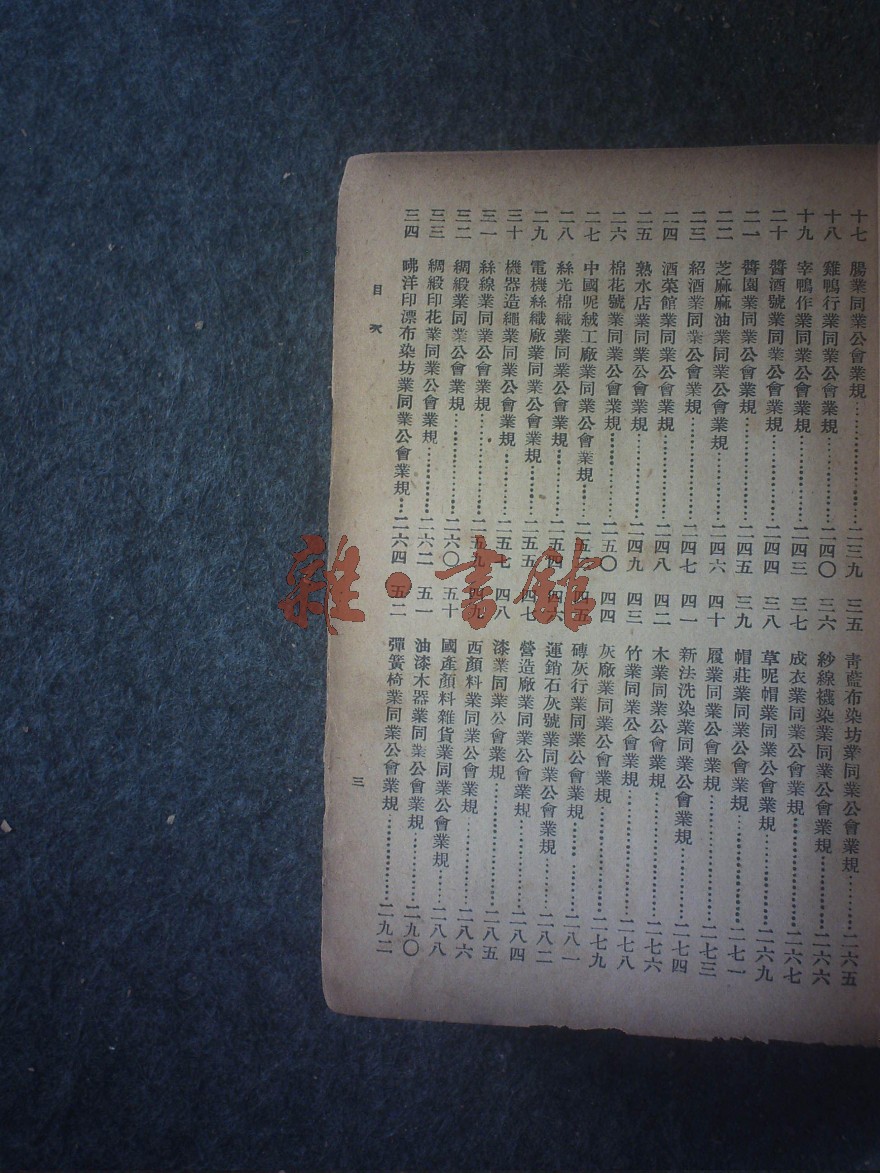 十七　腸業同業公會業規…………二三九
十八　雞鴨行業同業公會業規…………二四〇
十九　宰鴨作業同業公會業規…………二四三
二十　醬酒號業同業公會業規…………二四四
二一　醬園業同業公會業規…………二四五
二二　芝麻麻油業同業公會業規…………二四六
二三　紹酒業同業公會業規…………二四七
二四　酒菜館業同業公會業規…………二四八
二五　熟水店業同業公會業規…………二四九
二六　棉花號業同業公會業規…………二五〇
二七　中國呢絨工廠業同業公會業規……二五
二八　絲光棉織業同業公會業規…………二五四
二九　電機絲織廠業同業公會業規………二五五
三十　機器造繩業同業公會業規…………二五七
三一　絲線業同業公會業規…………二五九
三二　綢緞業同業公會業規…………二六〇
三三　綢緞印花業同業公會業規…………二六二
三四　咈洋印漂布染坊業同業公會業規…二六四
三五　青藍布染坊業同業公會業規………二六五
三六　紗線襪染業同業公會業規…………二六六
三七　成衣業同業公會業規…………二六七
三八　草呢帽業同業公會業規…………二六九
三九　帽莊業同業公會業規…………二七一
四十　履業同業公會業規…………二七三
四一　新法洗染業同業公會業規…………二七四
四二　木業同業公會業規…………二七六
四三　竹業同業公會業規…………二七八
四四　灰廠業同業公會業規…………二七九
四五　磚灰行業同業公會業規…………二八一
四六　運銷石灰號業同業公會業規………二八二
四七　營造廠業同業公會業規…………二八四
四八　漆業同業公會業規…………二八五
四九　西顏料業同業公會業規…………二八六
五十　國產顏料雜貨業同業公會業規……二八八
五一　油漆木器業同業公會業規…………二九〇
五二　彈簧椅業同業公會業規…………二九二
目次
三
雜·書館